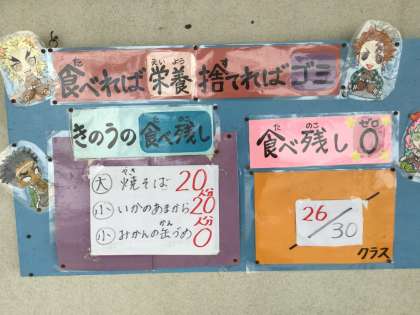 食べれば栄養捨てればゴミ
きのうの食べ残し
食べ残し0
大 焼そば 20人分
小 いかのあまから 20人分
小 みかんの缶づめ 0
26/30
クラス